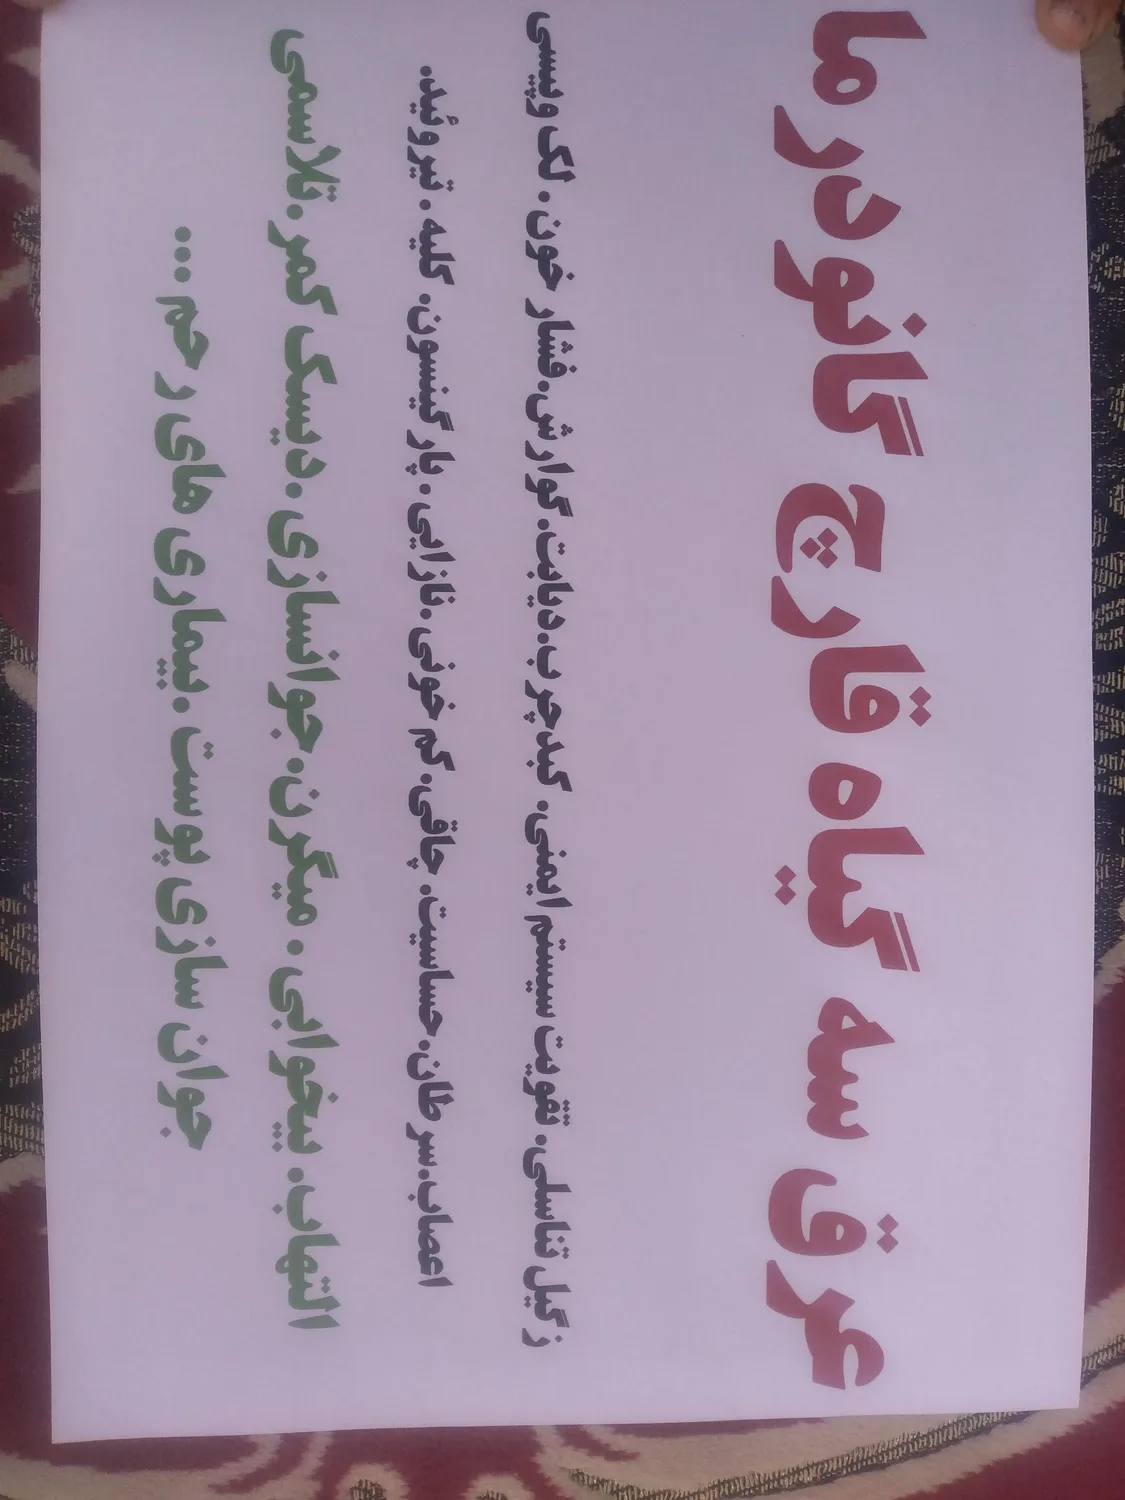 عرق سه گیاه قارچ گانودرما
زگیل تناسلی. تقویت سیستم ایمنی. کبدچرب.دیابت.گوارش.فشار خون. لک وپیسی
اعصاب.سرطان.حساسیت. چاقی.کم خونی .نازایی. پارگینسون. کلیه. تیروئید.
التهاب. بیخوابی . میگرن.جوانسازی.دیسک کمر.تلاسمی
جوان سازی پوست .بیماری های رحم ...